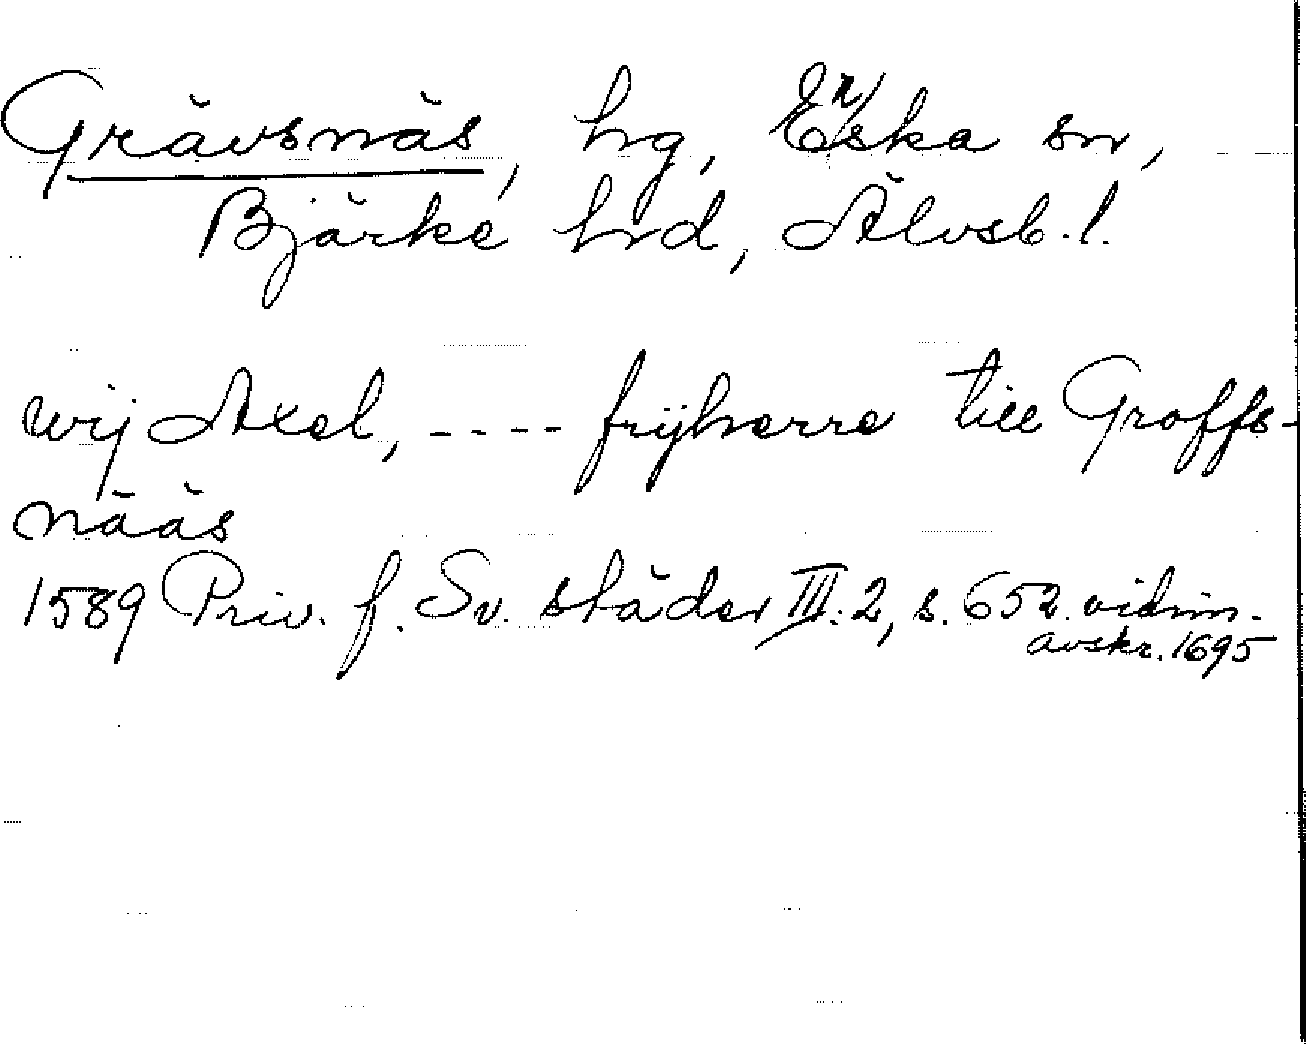 Grävsnäs, hg, E/n/ska sn,
Bjärke hrd, Älvsb. l.
wij Axel, ---- frijherre till Groffs-
nääs
1589 Priv. f. Sv. städer III:2, s. 652. vidim.
avskr. 1695